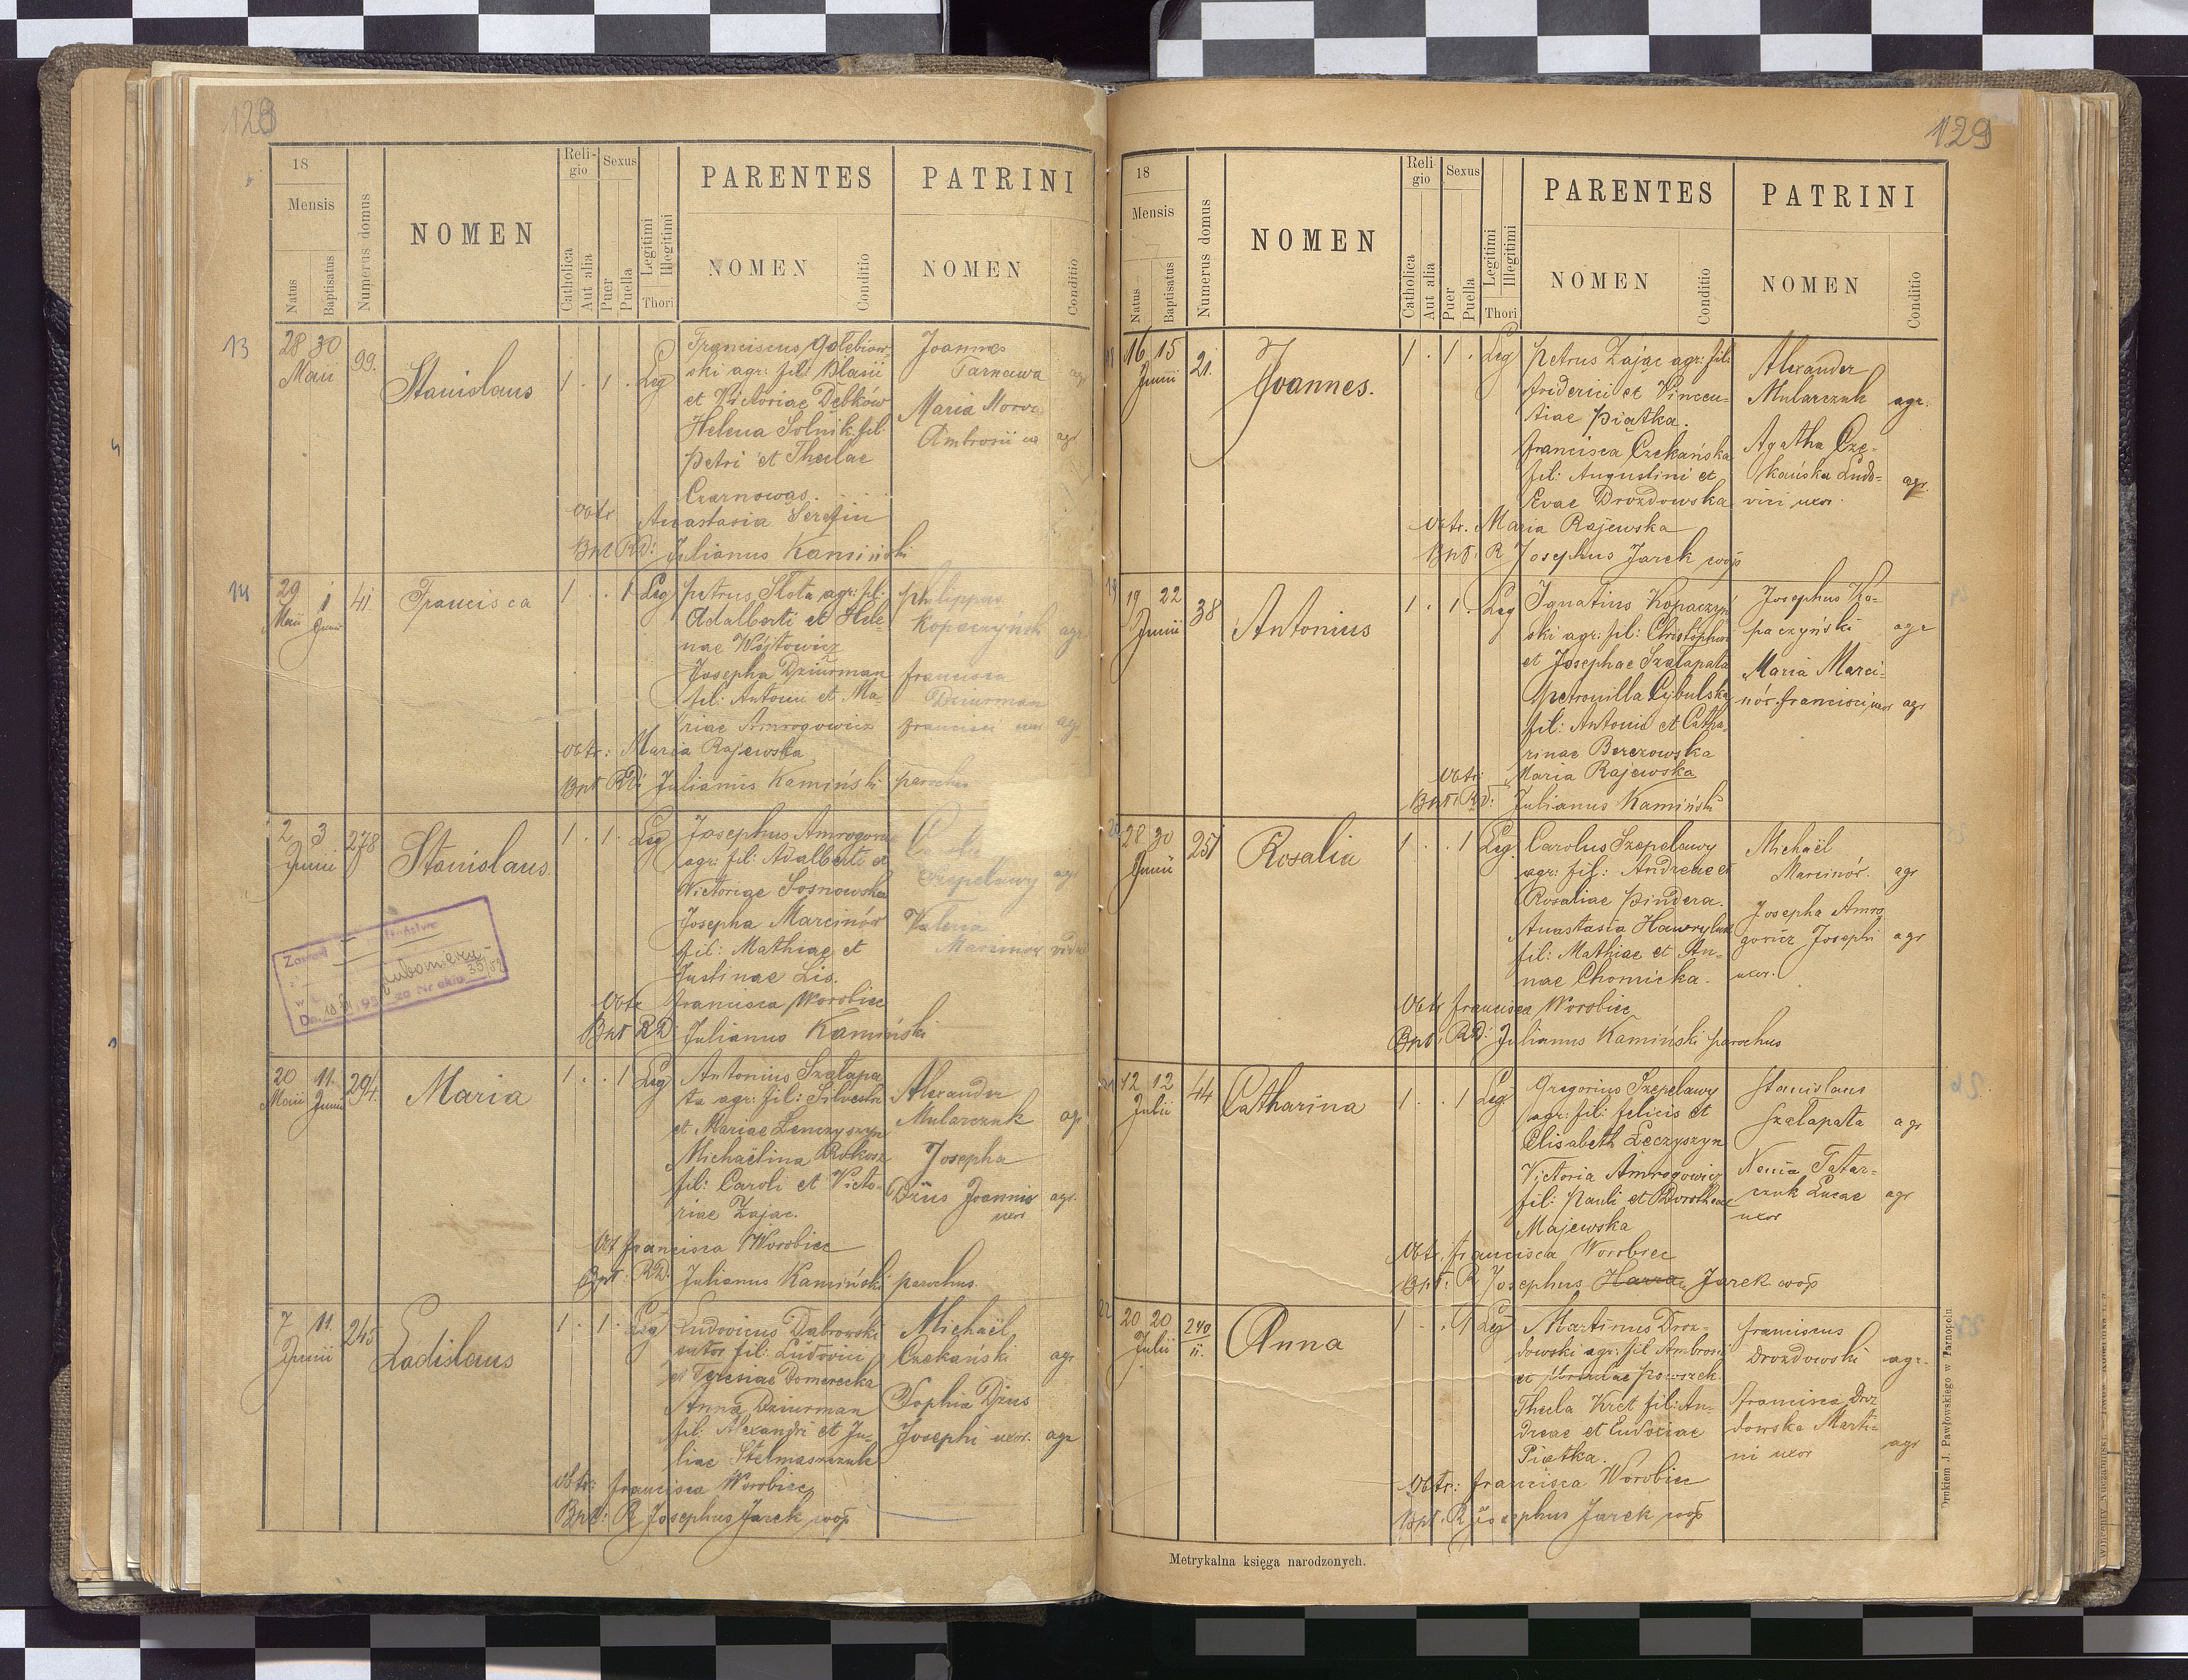 128
18
Mensis
Natus
Baptisatus
Numerus domus
NOMEN
Religio
Catholica
Aut alia
Sexus
Puer
Puella
Legitimi
Illegitimi
Thori
PARENTES
NOMEN
Conditio
PATRINI
NOMEN
Conditio
13
28 30
Maii
99.
Stanislaus
1 . 1 . Leg
Franciscus Gołebiow
ski agr: fil: Blasii
et Victoriae Dębków
Helena Solnik fil:
Petri et Theclae
Czarnowas.
Joannes
Tarnawa agr
Maria
Ambrosii agr
Obtr Anastasia Serafin
Bpt RD: Julianus Kamiński
14
29 1
Maii Junii
41.
Francisca
1 . . 1 Leg
Petrus Słota agr: fil:
Adalberti et Hele-
nae Wójtowicz
Josepha Dziurman
fil: Antonii et Ma-
riae Amrogowicz
Philippus
Kopaczyński agr
Francisca
Dziurman
Francisci uxor agr
Obtr: Maria Rajewska
Bpt RD: Julianus Kamiński parochus
2 3
Junii
278
Stanislaus.
1 . 1 . Leg
Josephus Amrogowicz
agr: fil: Adalberti et
Victoriae Sosnowska
Josepha Marcinów
fil: Mathiae et
Justinae Lis.
Szepelawy agr
Valeria
Marcinow vidua
Obtr Francisca Worobiec
Bpt RD: Julianus Kamiński
20 11.
Maii Junii
294.
Maria
1 . . 1 Leg
Antonius Szałapa
ta agr: fil: Silvestri
et Mariae Lenczyszyn
Michaëlina Rokosz
fil: Caroli et Victo-
riae Zając.
Alexander
Mularczuk agr
Josepha
Dzius Joannis agr.
uxor
Obt Francisca Worobiec
Bpt: RD: Julianus Kamiński parochus
7 11.
Junii
245
Ladislaus
1 . 1 . Leg
Ludovicus Dąbrowski
sutor fil: Ludovici
et Teresiae Domerecka
Anna Dziurman
fil: Alexandri et Ju-
liae Stelmaszczuk
Michaël
Czekański agr
Sophia Dzius
Josephi uxor. agr
Obtr: Francisca Worobiec
Bpt: R Josephus Jarek coop
129
18
Mensis
Natus
Baptisatus
Numerus domus
NOMEN
Religio
Catholica
Aut alia
Sexus
Puer
Puella
Legitimi
Illegitimi
Thori
PARENTES
NOMEN
Conditio
PATRINI
NOMEN
Conditio
16 15
Junii
21.
Joannes.
1 . 1 . Leg
Petrus Zając agr: fil:
Friderici et Vincen-
tiae Piątka.
Francisca Czekańska
fil: Augustini et
Evae Drozdowska
Alexander
Mularczuk agr.
Agatha Cze-
kańska Ludo- agr.
vici uxor.
Obtr. Maria Rajewska
Bpt: R Josephus Jarek coop
19
19 22
Junii
38
Antonius
1 . 1 . Leg
Ignatius Kopaczyń
ski agr: fil: Christophori
et Josephae Szałapata
Petronilla Cybulska
fil: Antonii et Catha-
rinae Berezowska
Josephus Ko-
paczyński agr
Maria Marci-
nów Francisci uxor agr
Obtr: Maria Rajewska
Bpt: RD: Julianus Kamiński
20
28 30
Junii
251
Rosalia
1 . . 1 Leg.
Carolus Szepelawy
agr: fil: Andreae et
Rosaliae Pindera.
Anastasia Hawryluk
fil: Mathiae et An-
nae Chomicka.
Michaël
Marcinów. agr
Josepha Amro
gowicz Josephi agr
uxor.
Obtr Francisca Worobiec
Bpt: RD: Julianus Kamiński parochus
21
12 12
Julii
44
Catharina
1 . . 1 Leg
Gregorius Szepelawy
agr: fil: Felicis et
Elisabeth Łeczyszyn
Victoria Amrogowicz
fil: Pauli et Dorotheae
Majewska
Stanislaus
Szałapata agr
Tatar-
czuk Lucae agr
uxor
Obtr. Francisca Worobiec
Bpt: R Josephus Jarek coop
22
20 20
Julii
240
ii.
Anna
1 . . 1 Leg
Martinus Droz-
dowski agr: fil Ambrosii
et Ursulae Powszek
Thecla Kret fil: An-
dreae et Eudociae
Piątka.
Franciscus
Drozdowski agr.
Francisca Droz
dowska Marti-
ni uxor agr
Obtr: Francisca Worobiec
Bpt: R Josephus Jarek coop
Metrykalna księga narodzonych.
Drukiem J. Pawłowskiego w Tarnopolu